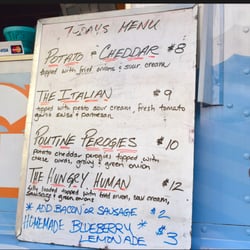 7-JAYS MENU
POTATO & CHEDDAR $8
topped with fried onions & sour cream
THE ITALIAN $9
topped with pesto sour cream, fresh tomato
garlic salsa & parmesan
POUTINE PEROGIES $10
potato cheddar perogies topped with
cheese curds, gravy & green onion
THE HUNGRY HUMAN $12
fully loaded topped with fried onion, sour cream,
sausage & green onions
* ADD BACON OR SAUSAGE $2
HOMEMADE BLUEBERRY
LEMONADE * $3